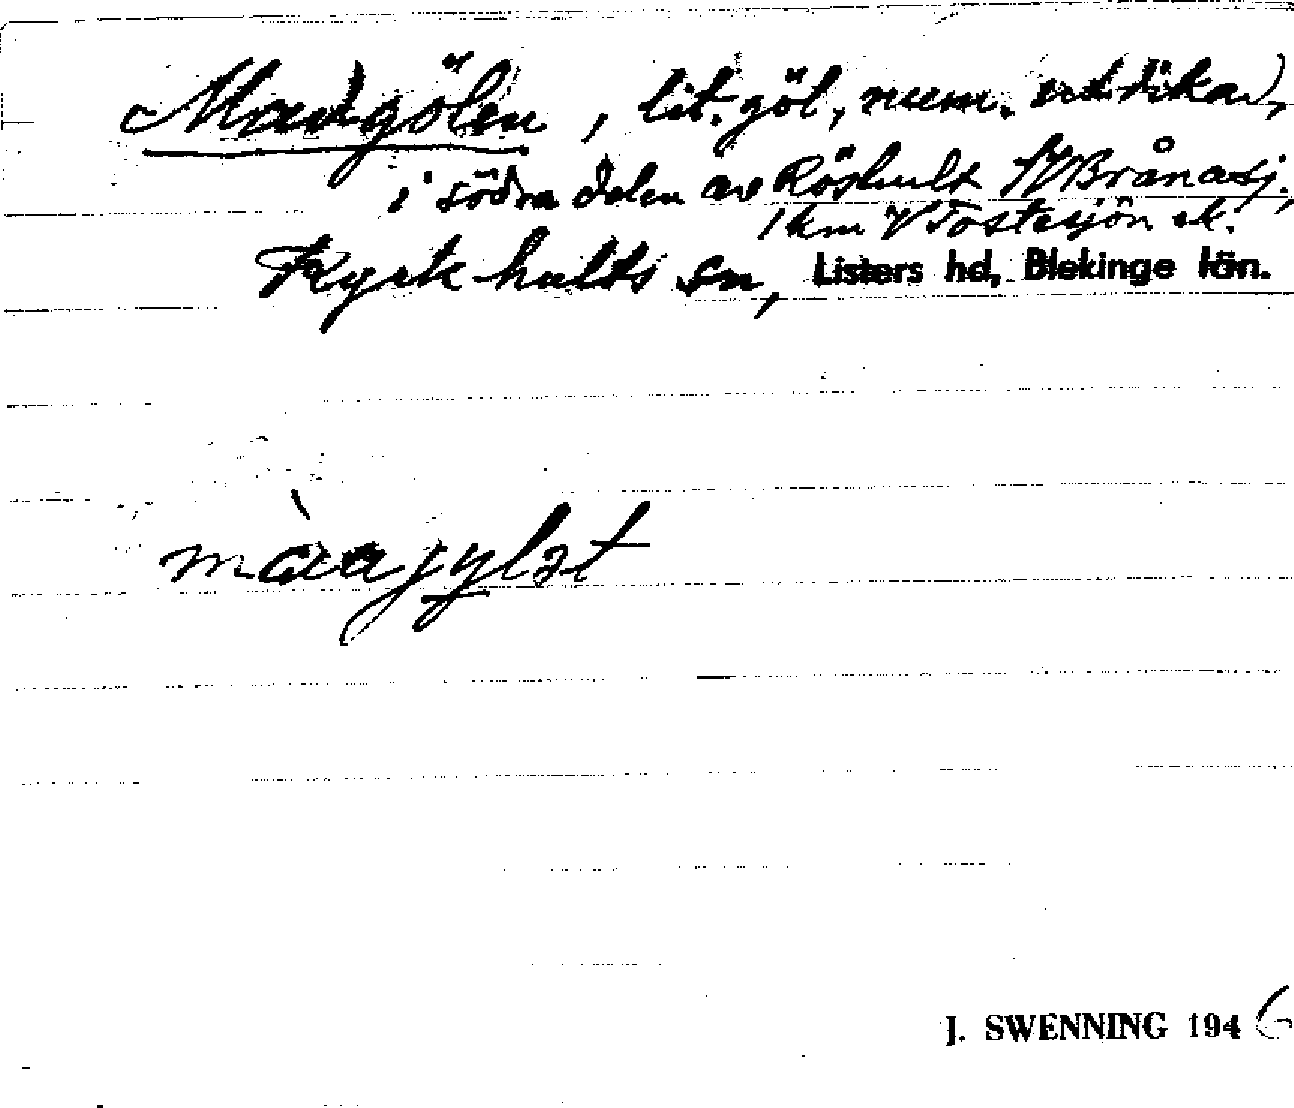 Madgölen, lit. göl, num. utdikad,
i södra delen av Röshult SV Brånasj.,
1 km V Tostesjön
Kyrkhults sn, Listers hd, Blekinge län.
màajylət
J. SWENNING 1946